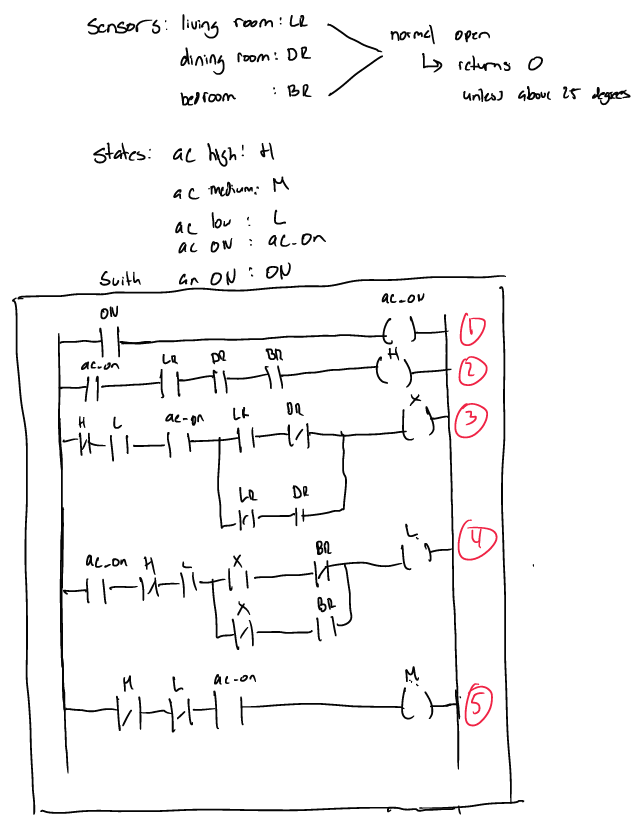 Sensors: living room: LR
dining room: DR
bedroom : BR
normal open
↳ returns 0
unless above 25 degrees
States: ac high: H
ac medium: M
ac low : L
ac ON : ac_on
Suith an ON : ON
ON ac_on 1
ac_on LR DR BR H 2
H L ac_on LR DR X 3
LR DR
ac_on H L X BR L 4
X BR
H L ac_on M 5